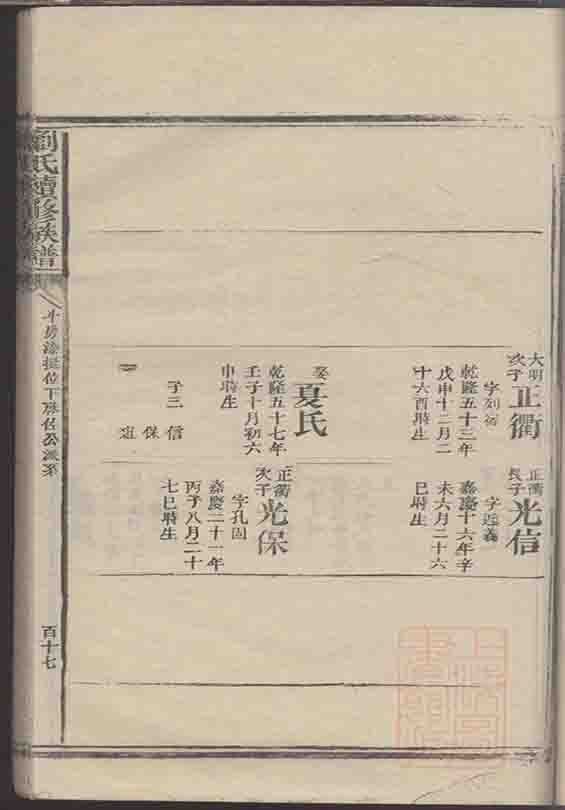 大明次子 正衢
字列衢
乾隆五十三年
戊申十二月二
十六酉時生
娶 夏氏
乾隆五十七年
壬子十月初六
申時生
子三 信
保
正衢長子 光信
字近義
嘉慶十六年辛
未六月二十六
巳時生
正衢次子 光保
字孔固
嘉慶二十一年
丙子八月二十
七巳時生
劉氏續修族譜
百十七